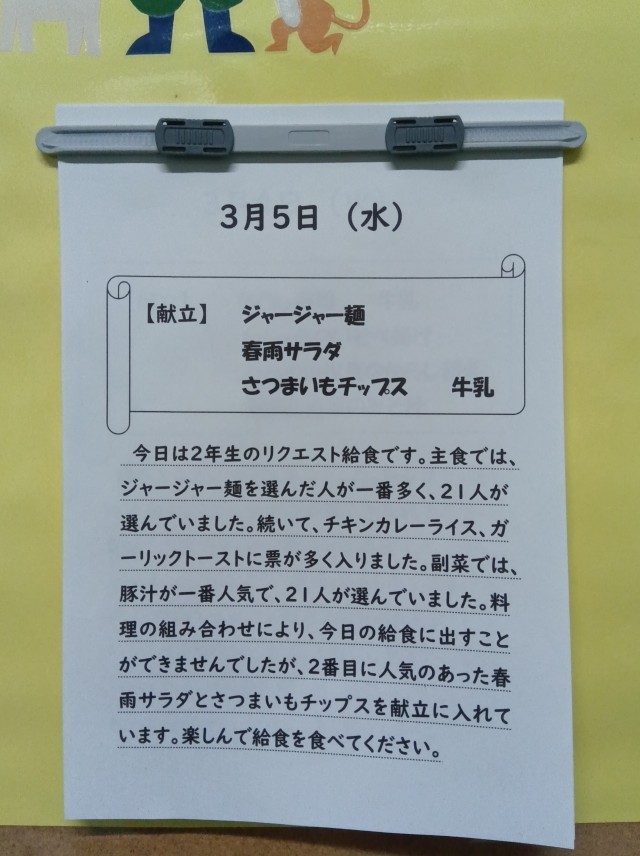 3月5日 (水)
【献立】 ジャージャー麺
春雨サラダ
さつまいもチップス 牛乳
今日は2年生のリクエスト給食です。主食では、
ジャージャー麺を選んだ人が一番多く、21人が
選んでいました。続いて、チキンカレーライス、ガ
ーリックトーストに票が多く入りました。副菜では、
豚汁が一番人気で、21人が選んでいました。料
理の組み合わせにより、今日の給食に出すこと
ができませんでしたが、2番目に人気のあった春
雨サラダとさつまいもチップスを献立に入れて
います。楽しんで給食を食べてください。